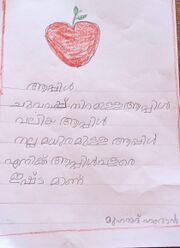 ആപ്പിൾ
ചുവപ്പ് നിറമുള്ള ആപ്പിൾ
വലിയ ആപ്പിൾ
നല്ല മധുരമുള്ള ആപ്പിൾ
എനിക്ക് ആപ്പിൾ വളരെ
ഇഷ്ട മാണ്
മുഹമ്മദ്